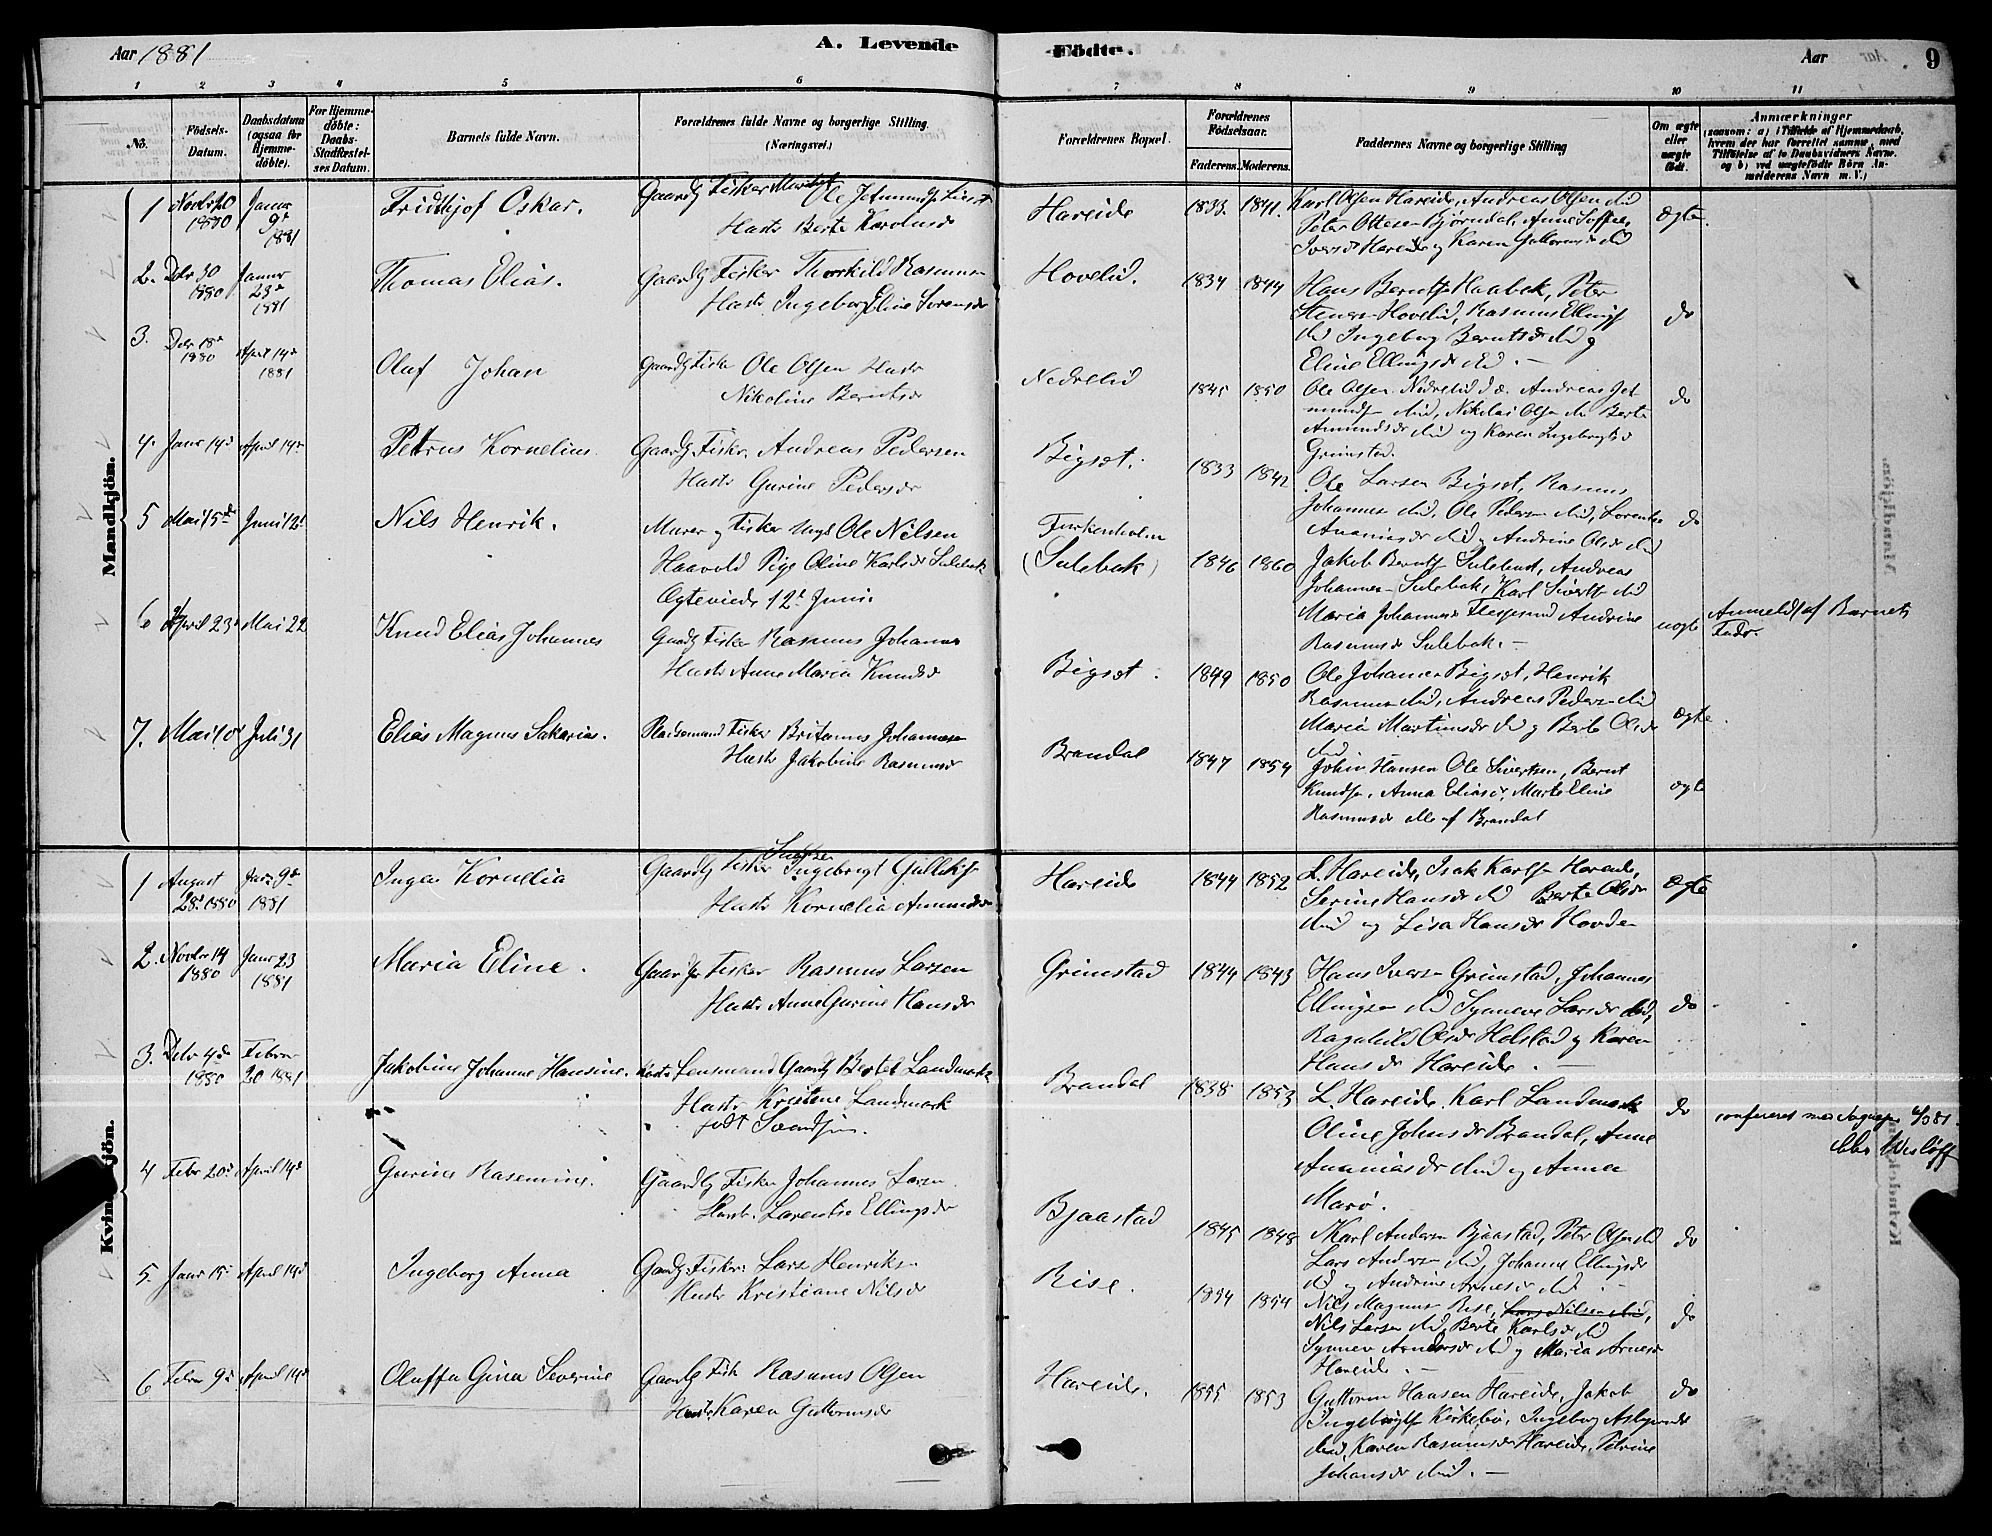 Aar 1881
A. Levende
Födte.
Aar
9
1 2 3 4 5 6 7 8 9 10 11
No.
Födsels-
Datum.
Daabsdatum
(ogsaa for
Hjemme-
döbte).
For Hjemme-
döbte:
Daabs-
Stadfæstel-
ses Datum.
Barnets fulde Navn.
Forældrenes fulde Navne og borgerlige Stilling
(Næringsvei.)
Forældrenes Bopæl.
Forældrenes
Födselsaar.
Faderens. Moderens.
Faddernes Navne og borgerlige Stilling
Om ægte
eller
uægte
födt.
Anmærkninger
(saasom: a) i Tilfælde af Hjemmedaab,
hvem der har forrettet samme, med
Tilföielse af to Daabsvidners Navne.
og b) ved uægtefödte Börn An-
melderens Navn m. V.)
Mandkjön.
1 Novbr 20
1880
Januar
9d
1881
Fridthjof Oskar.
Gaardbr Fisker
Hustr Berte Karolusdr
Hareide
1833. 1841.
Karl Olsen Hareide, Andreas Olsen ibid
Peter Ottesen Bjørndal, Anne Soffie
Iversdr Hareide og Karen Guttormsdr ibid
Ægte.
2. Debr 30
1880
Januar
23d
1881
Thomas Elias.
Gaardbr Fisker Thorkild Rasmusen
Hustr Ingeborg Eline Sørensdr
Hovelid.
1834 1844
Hans Berntsen Haabek, Peter
Stenersen Hovelid, Rasmus Ellingsen
ibid Ingeborg Berntsdr ibid og
Eline Ellingsdr ibid. —
do
3. Debr 18d
1880
April 14d
1881
Olaf Johan
Gaardbr Fisker Ole Olsen Hustr
Nikoline Berntsdr
Nedrelid
1845 1850
Ole Olsen Nedrelid d.æ. Andreas Jet
mundsen ibid, Nikolai Olsen ibid Berte
Amundsdr ibid og Karen Ingebrigtsdr
Grimstad.
do
4. Janr 14d April 14d
Petrus Kornelius.
Gaardbr Fisker. Andreas Pedersen
Hustr Gurine Pedersdr
Bigset.
1833 1842
Ole Larsen Bigset, Rasmus
Johannesen ibid. Ole Pedersen ibid, Lorentse
Ananiasdr ibid og Andrine Olsdr ibid
do
5 Mai 15de Juni 12d
Nils Henrik.
Murer og Fisker Ungk Ole Nilsen
Haavold Pige Oline Karlsdr Sulebak
Ægteviede 12te Juni.
(Sulebak)
1846 1860
Jakob Berntsen Sulebust, Andreas
Johannesen Sulebak, Karl Sivertsen ibid
Maria Johannesdr Flesjesund Andrine
Rasmusdr Sulebak. —
uægte
Anmeldt af Barnets
Fader.
6 April 23d Mai 22
Knud Elias Johannes
Gaardbr Fisker Rasmus Johannesen
Hustr Anne Maria Knudsdr
Bigset.
1849 1850
Ole Johannesen Bigset, Henrik
Rasmusen ibid, Andreas Pedersen ibid
Maria Martinusdr ibid og Berte Olsdr
ibid
Ægte.
7. Mai 10d Juli 31
Elias Magnus Sakarias.
Pladsemand Fisker Britanus Johannesen
Hustr Jakobine Rasmusdr
Brandal
1847 1854
Johan Hansen Ole Sivertsen, Bernt
Knudsen, Anna Eliasdr, Marte Eline
Rasmusdr alle af Brandal
ægte
Kvindekjön.
1 August
28d 1880
Jan. 9d
1881
Inga Kornelia
Gaardbr Fisker Ingebrigt Gulliksen
Hustr Kornelia Amundsdr
Hareide
1844 1852
L. Hareide, Isak Karlsen Hareide,
Serine Hansdr ibid Berte Olsdr
ibid og Lisa Hansdr Hovde
Ægte
2. Novbr 14
1880
Janr 23
1881
Maria Eline.
Gaardbr Fisker Rasmus Larsen
Hustr Anne Gurine Hansdr
Grimstad
1844 1843
Hans Iversen Grimstad, Johannes
Ellingsen ibid Synneve Larsdr ibid,
Ragnhild Olsdr Holstad og Karen
Hansdr Hareide. —
do
3. Debr 4de
1880
Febru
20 1881
Jakobine Johanne Hansine.
Lensmand Gaardbr Bertel Landmark
Hustr Kristine Landmark
født
Brandal
1838 1853
L. Hareide, Karl Landmark
Oline Johnsdr Brandal, Anne
Ananiasdr ibid og Anna
Marø.
do
confereret med 81.
Wisløff
4 Febr 20d April 14d
Gurina Rasmine.
Gaardbr Fisker Johannes Larsen.
Hustr. Lorentse Ellingsdr
Bjaastad
1845 1848
Karl Andersen Bjaastad, Peter Olsen ibid
Lars Andersen ibid, Johanne Ellingsdr
ibid og Andrine Arnesdr ibid. —
do
5. Janr 15d April 14d
Ingeborg Anna
Gaardbr Fisker Lars Henriksen
Hustr Kristiane Nilsdr
Rise.
1854 1854
Nils Magnusen Rise, Lars Nilsen ibid,
Nils Larsen ibid, Berte Karlsdr ibid
Synnev Andersdr ibid og Maria Arnesdr
Hareide. —
do
6 Febru 9d April 14d
Oluffa Gina Severine
Gaardbr Fisk Rasmus Olsen
Hustr. Karen Guttormsdr
Hareide.
1855 1853
Guttorm Hansen Hareide, Jakob
Ingebrigtsen Kirkebø, Ingeborg
ibid, Karen Rasmusdr Hareide, Petrine
Johansdr ibid. —
do